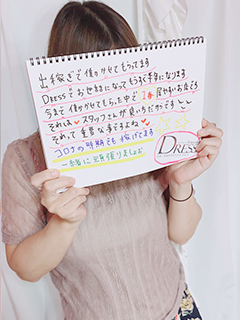 出稼ぎで働かせてもらってます
DRESSでお世話になってもうすぐ半年になります
今まで働かせてもらった中で1番居やすいお店です
それは♥スタッフさんが良い方だからです
それって重要な事ですよね♥
コロナの時期でも稼げてます
一緒に頑張りましょ
DRESS